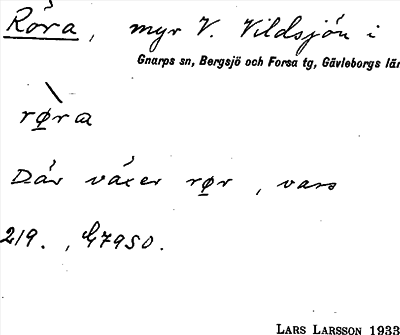 Röra, myr V. Vildsjön i
Gnarps sn, Bergsjö och Forsa tg, Gävleborgs län
røra
Där växer rør, vars
219., G7950.
LARS LARSSON 1933